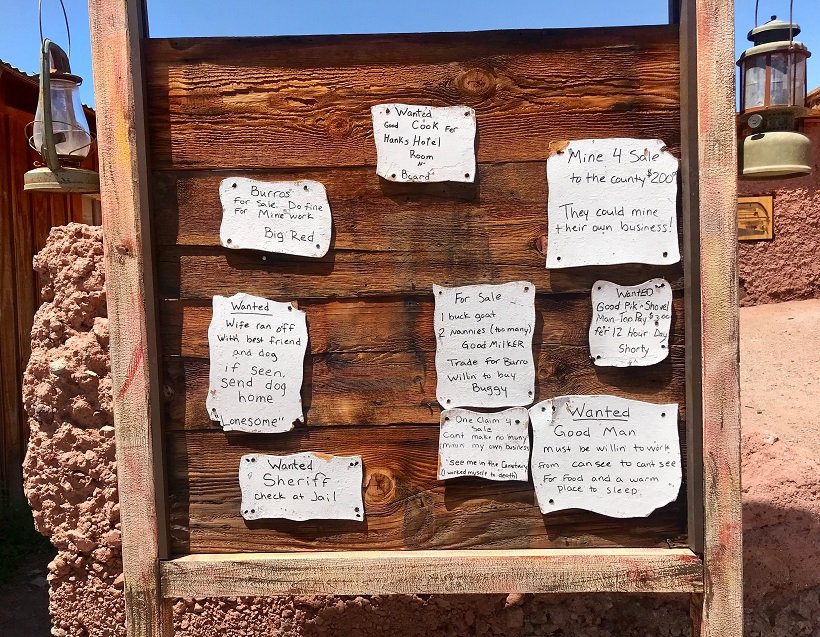 Wanted
Good Cook For
Hanks Hotel
Room
"n"
Board
Mine 4 Sale
to the county $200
They could mine
their own business!
Burros
For Sale. Do fine
For Mine work
Big Red
Wanted
Wife ran off
with best friend
and dog
if seen,
send dog
home
"Lonesome"
For Sale
1 buck goat
2 Nannies (too many)
Good Milker
Trade for Burro
Willin to buy
Buggy
Wanted
Good Pik-n-Shovel
Man Too Pay $3.00
for 12 Hour Day
Shorty
One Claim 4
Sale
Cant make no mony
minin my own business
See me in the Cemetary
(I worked myself to death)
Wanted
Good Man
must be willin to work
from can see to can't see
For food and a warm
place to sleep.
Wanted
Sheriff
check at Jail